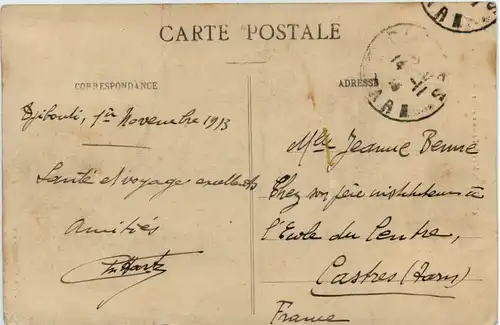 CARTE POSTALE
CORRESPONDANCE
ADRESSE
Djibouti, 1er Novembre 1913
Santé et voyage excellents
Amitiés
Mlle Jeanne
Chez son père instituteur à
l'Ecole du Centre,
Castres (Tarn)
France
14 -11
TARN